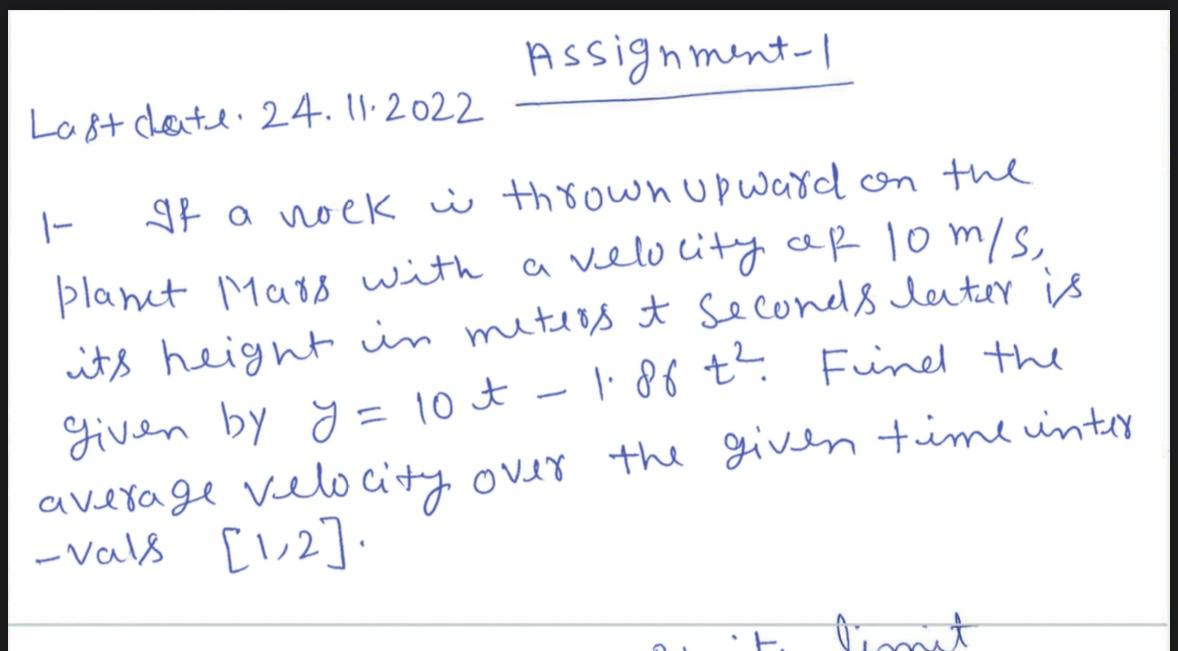 Assignment-1
Last date. 24.11.2022
1- If a rock is thrown upward on the
planet Mars with a velocity of 10 m/s,
its height in meters t seconds later is
given by y = 10t - 1.86 t². Find the
average velocity over the given time inter
-vals [1,2].
limit